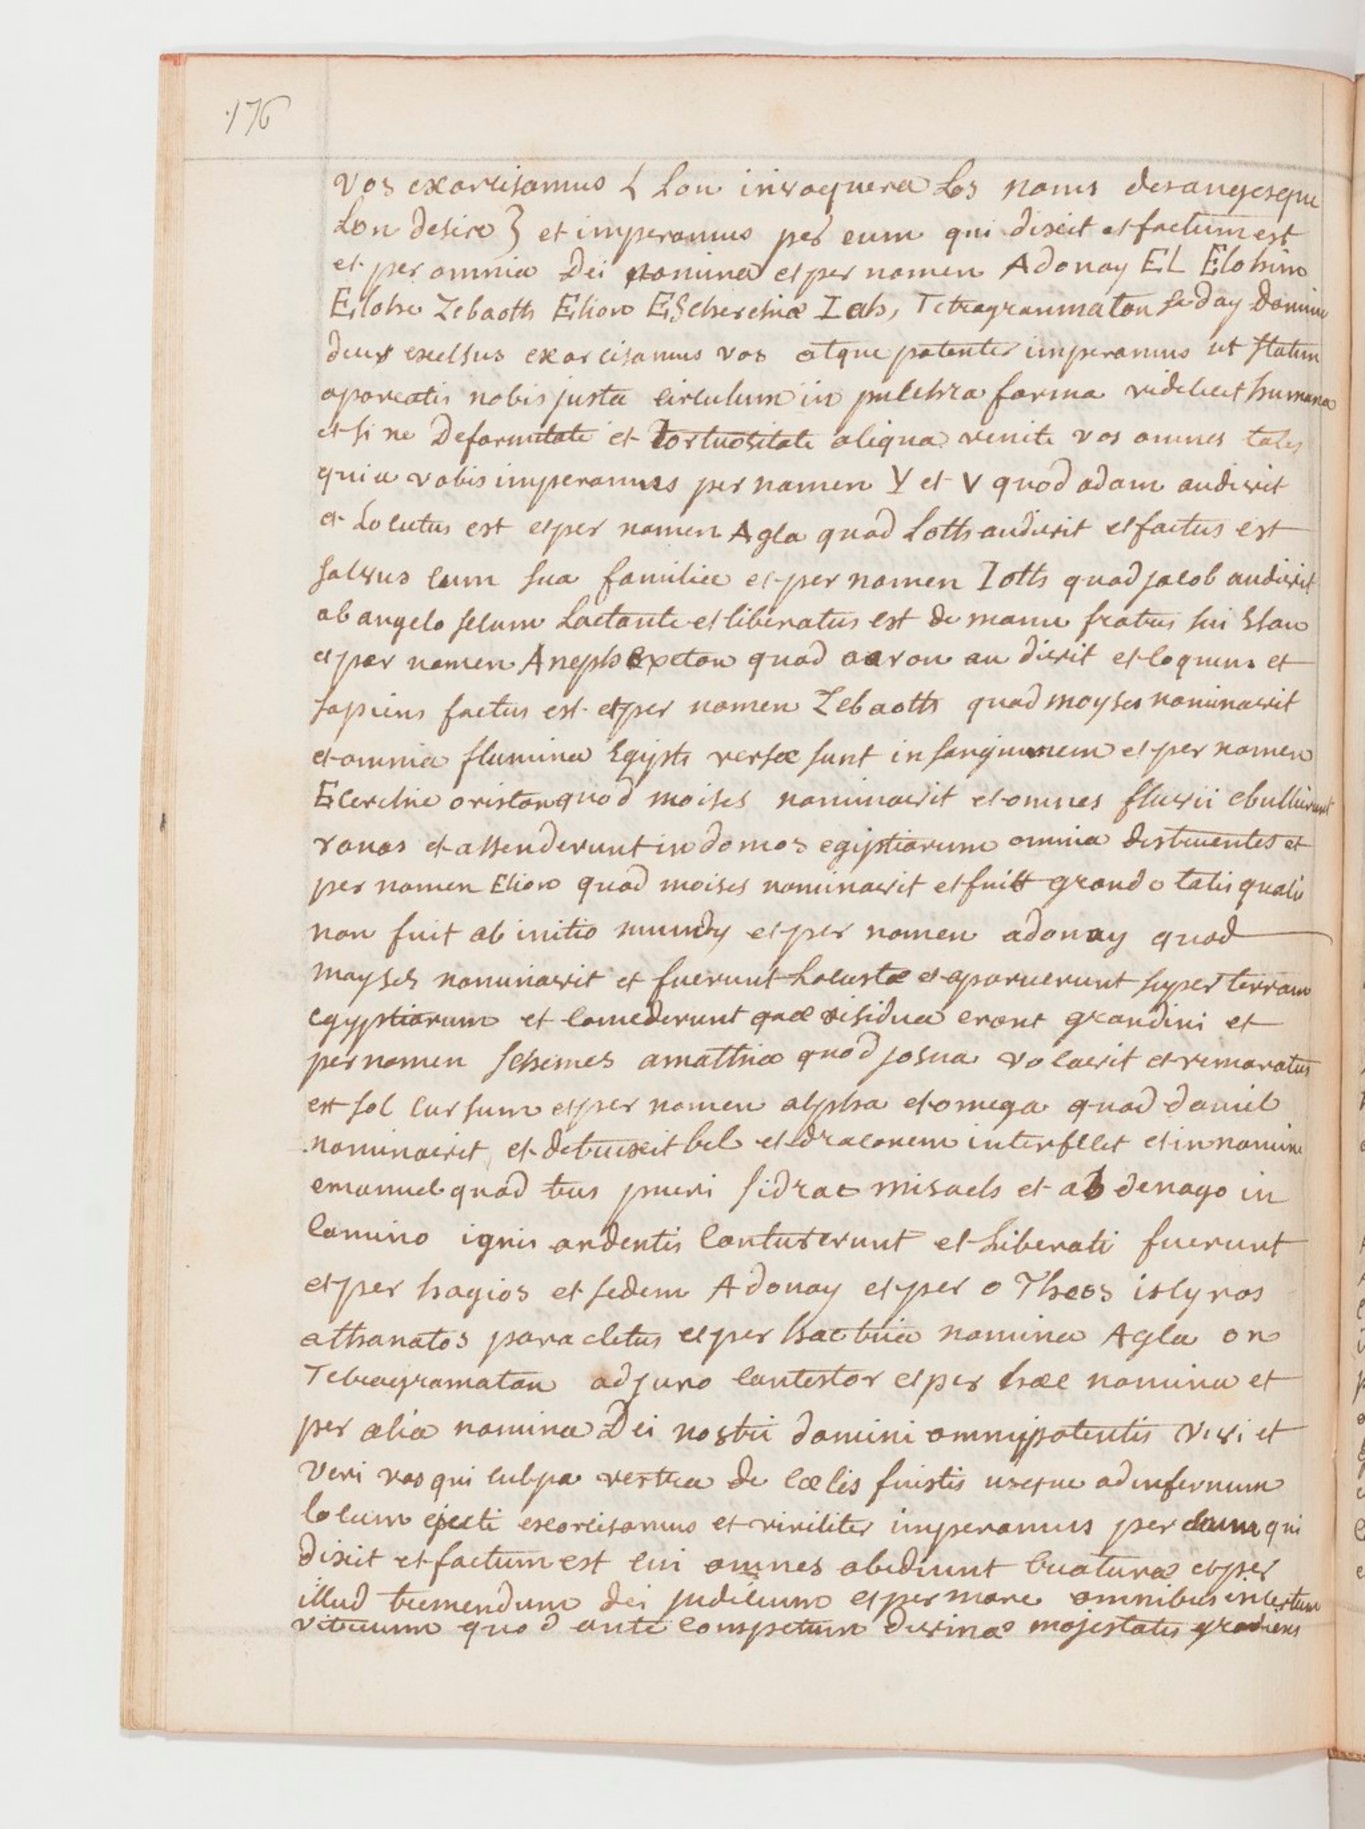 176
vos exorcisamus { lon invoquera les noms des anges que
lon desire } et imperamus per eum qui dixit et factum est
et per omnia Dei nomina et per nomen Adonay EL Elohim
Elohe Zebaoth Elion EScherehie Iah, Tetragranmaton saday Domin
deus excelsus exorcisamus vos atque potenter imperamus ut statim
apareatis nobis justa circulum in pulchra forma videlicet humana
et sine Deformitate et tortuositate aliqua venite vos omnes tales
quia vobis imperamus per nomen Y et V quod adam audivit
et Locutus est et per nomen Agla quod Loth audivit et factus est
salvus cum sua familia et per nomen Ioth quod jacob audivit
ab angelo secum Luctante et liberatus est de manu fratris sui Esau
et per nomen Anephexeton quod aaron audivit et loquens et
sapiens factus est et per nomen Zebaoth quod moyses nominavit
et omnia flumina Egipti versæ sunt in sanguinem et per nomen
Ecerchie oriston quod moises nominavit et omnes fluvii ebullierunt
ranas et assenderunt in domos egiptiorum omnia destruentes et
per nomen Elion quod moises nominavit et fuit grando talis qualis
non fuit ab initio mundy et per nomen adonay quod
moyses nominavit et fuerunt Locustæ et aparuerunt super terram
egyptiorum et comederunt quæ residua erant grandini et
per nomen schemes amathia quod josua vocavit et remoratus
est sol cursum et per nomen alpha et omega quod daniel
nominavit et detruxit bel et draconem interfecit et in nomine
emanuel quod tres pueri sidrac misach et abdenago in
camino ignis ardentis cantaverunt et Liberati fuerunt
et per hagios et sedem Adonay et per o Theos iscyros
athanatos paracletus et per hæc tria nomina Agla on
Tetragramaton adjuro contestor et per hæc nomina et
per alia nomina Dei nostri domini omnypotentis vivi et
veri vos qui culpa vestra de cœlis fuistis usque ad infernum
locum ejecti exorcisamus et viriliter imperamus per eum qui
dixit et factum est cui omnes obediunt creaturæ et per
illud tremendum dei judicium et per mare omnibus incertum
vitreum quod ante conspetum divinæ majestatis gradiens